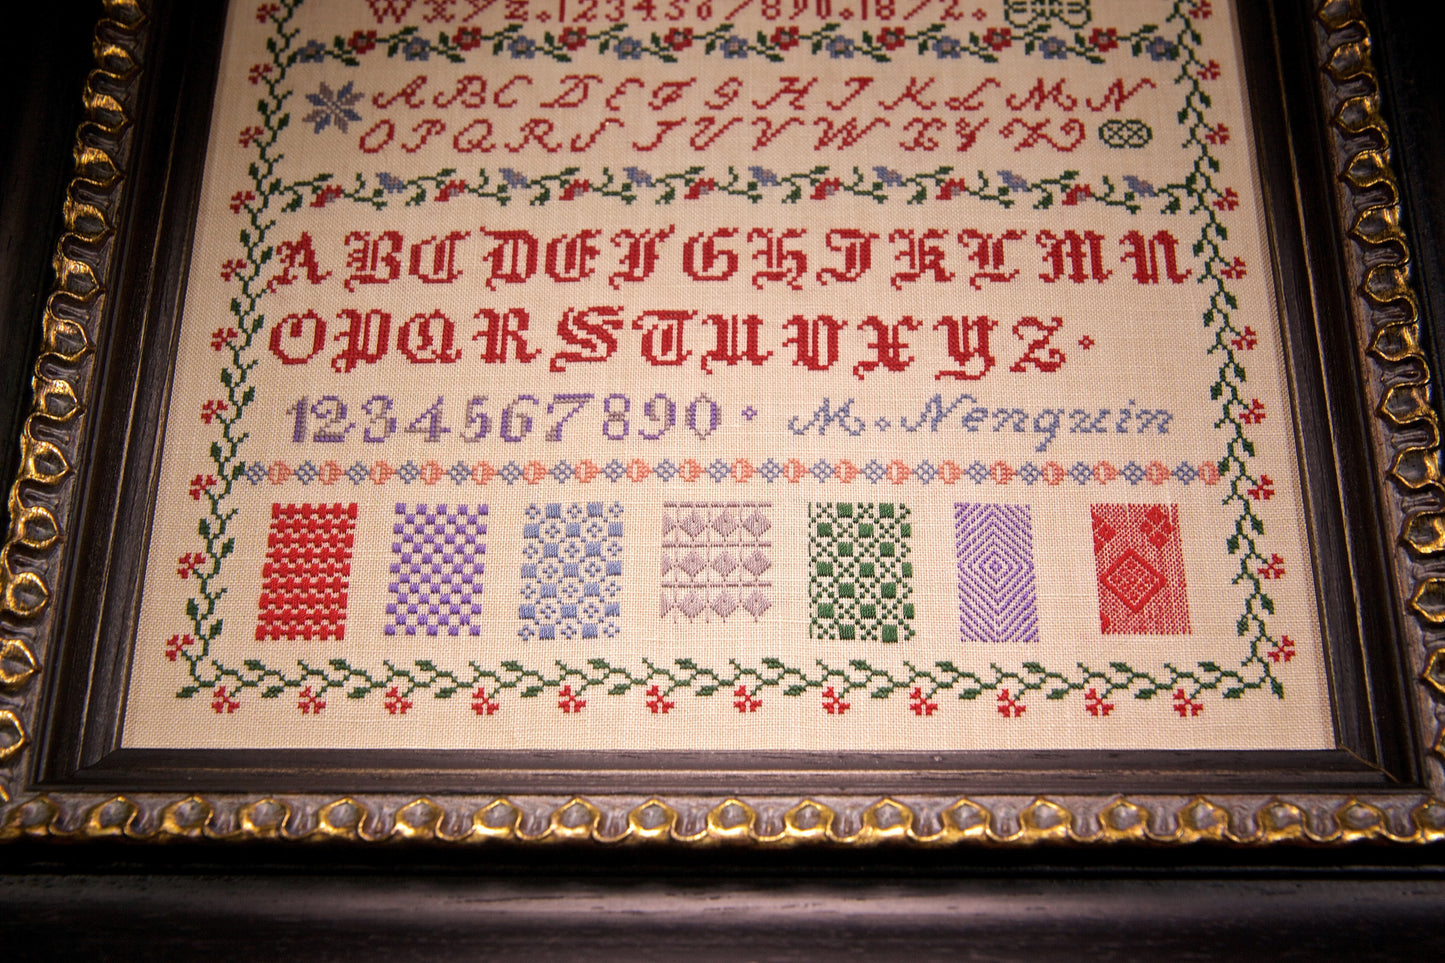 WXYZ.1234567890.1872.
ABCDEFGHIJKLMN
OPQRSTUVWXYZ
ABCDEFGHIJKLMN
OPQRSTUVXYZ.
1234567890. M. Nenguin